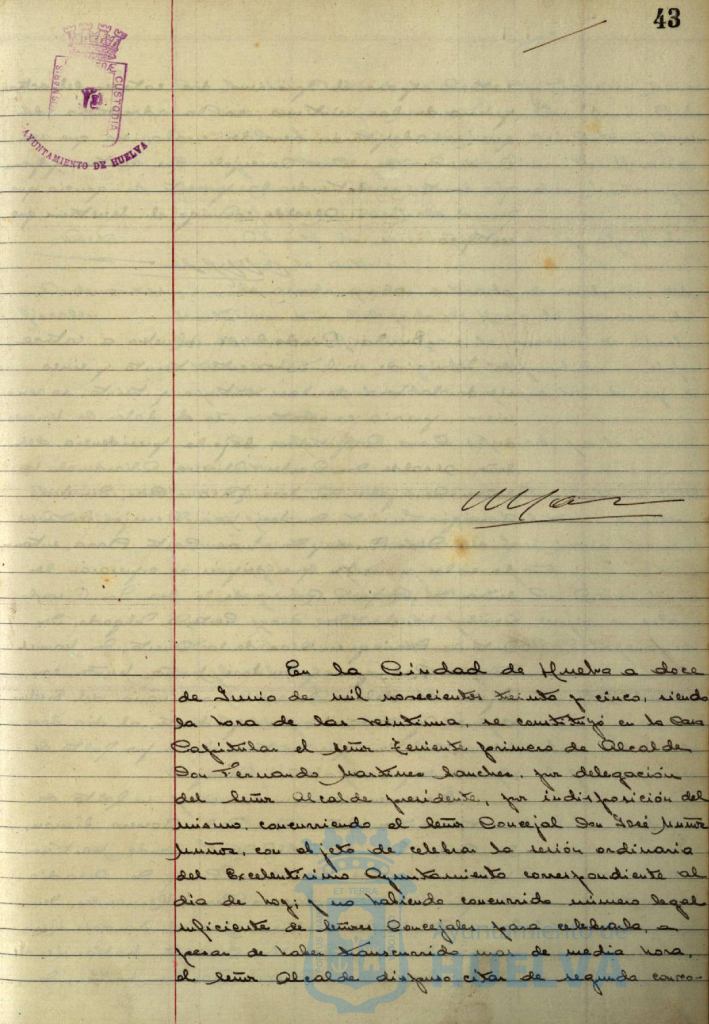 43
PORTUS
CUSTODIA
AYUNTAMIENTO DE HUELVA
En la Ciudad de Huelva a doce
de Junio de mil novecientos treinta y cinco, siendo
la hora de las veintiuna, se constituyó en la Casa
Capitular el Señor Teniente primero de Alcalde
Don Fernando Martinez Sanchez, por delegación
del Señor Alcalde presidente, por indisposición del
mismo, concurriendo el Señor Concejal Don José Muñoz
Muñoz, con objeto de celebrar la sesión ordinaria
del Excelentisimo Ayuntamiento correspondiente al
dia de hoy; y no habiendo concurrido número legal
suficiente de Señores Concejales para celebrarla, a
pesar de haber transcurrido mas de media hora,
el Señor Alcalde dispuso citar de segunda convo-